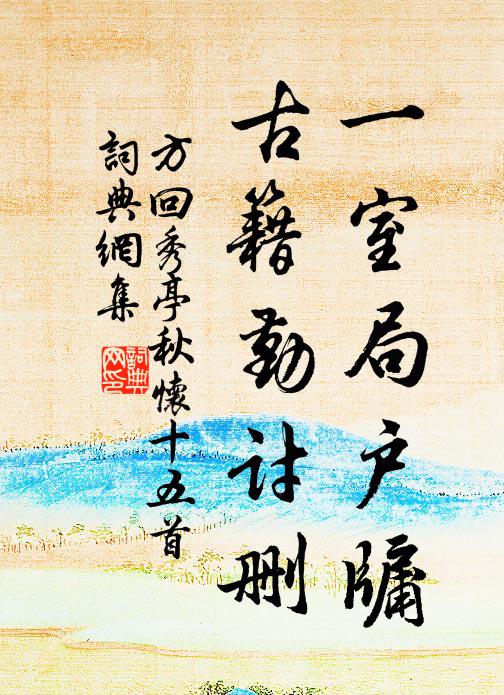 一室局户牖
古籍勤討刪
方回秀亭秋懷十五首
詞典網集
詞典
网印